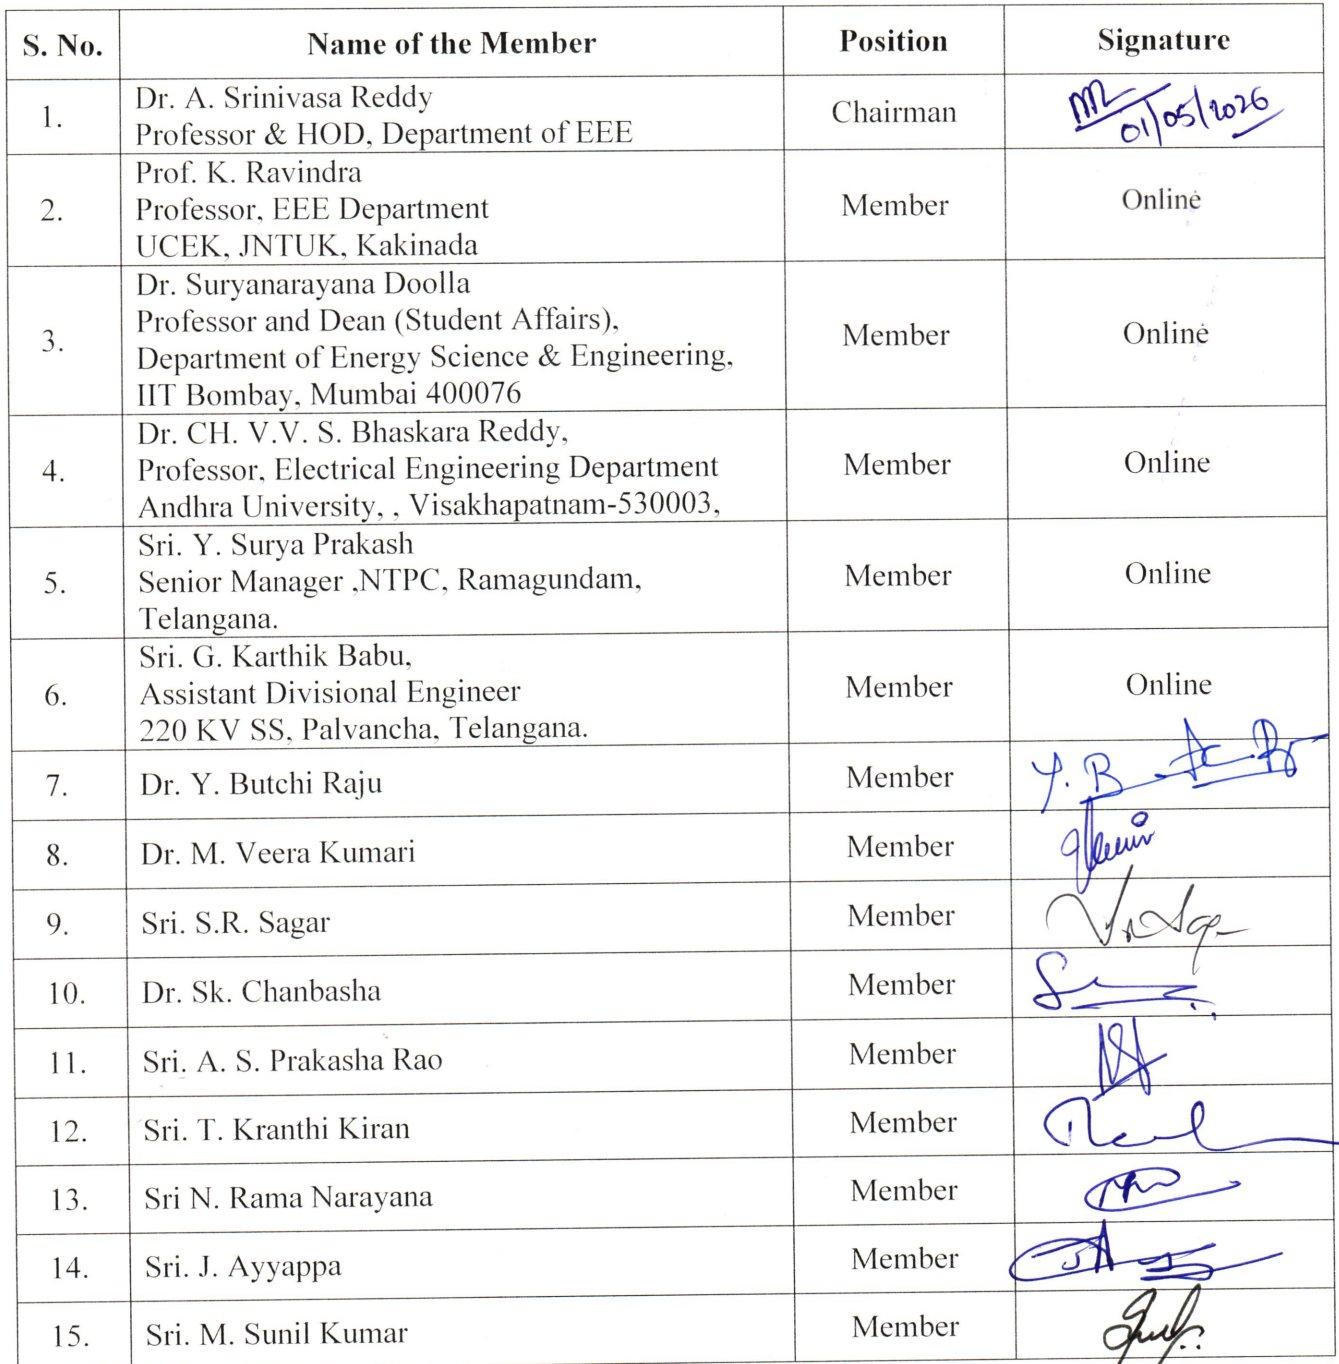 S. No. Name of the Member Position Signature
1. Dr. A. Srinivasa Reddy
Professor & HOD, Department of EEE Chairman 01/05/2026
2. Prof. K. Ravindra
Professor, EEE Department
UCEK, JNTUK, Kakinada Member Online
3. Dr. Suryanarayana Doolla
Professor and Dean (Student Affairs),
Department of Energy Science & Engineering,
IIT Bombay, Mumbai 400076 Member Online
4. Dr. CH. V.V. S. Bhaskara Reddy,
Professor, Electrical Engineering Department
Andhra University, , Visakhapatnam-530003, Member Online
5. Sri. Y. Surya Prakash
Senior Manager ,NTPC, Ramagundam,
Telangana. Member Online
6. Sri. G. Karthik Babu,
Assistant Divisional Engineer
220 KV SS, Palvancha, Telangana. Member Online
7. Dr. Y. Butchi Raju Member
8. Dr. M. Veera Kumari Member
9. Sri. S.R. Sagar Member
10. Dr. Sk. Chanbasha Member
11. Sri. A. S. Prakasha Rao Member
12. Sri. T. Kranthi Kiran Member
13. Sri N. Rama Narayana Member
14. Sri. J. Ayyappa Member
15. Sri. M. Sunil Kumar Member